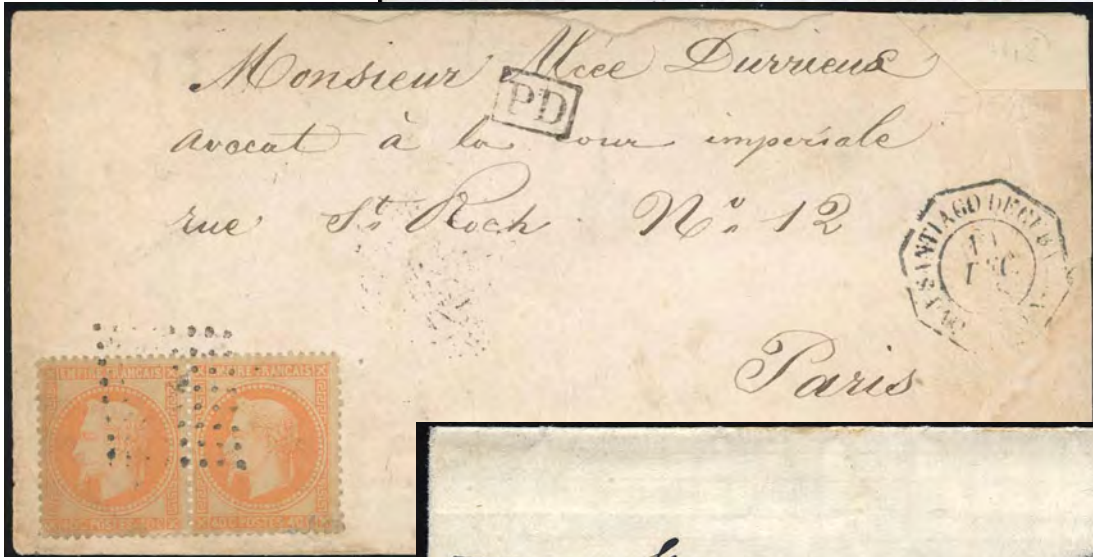 Monsieur Mice Durrieux
PD
avocat à la cour imperiale
rue St Roch Nº 12
SANTIAGO DE CUBA
DEC
Paris
EMPIRE FRANÇAIS EMPIRE FRANÇAIS
40 C. POSTES 40 C. 40 C. POSTES 40 C.